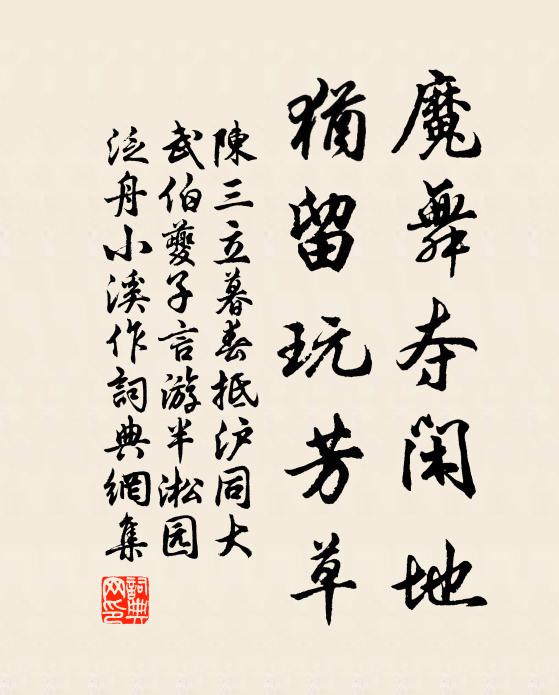 魔舞夺闲地
犹留玩芳草
陳三立暮春抵沪同大
武伯夔子言游半淞园
泛舟小溪作詞典網集
詞典网印